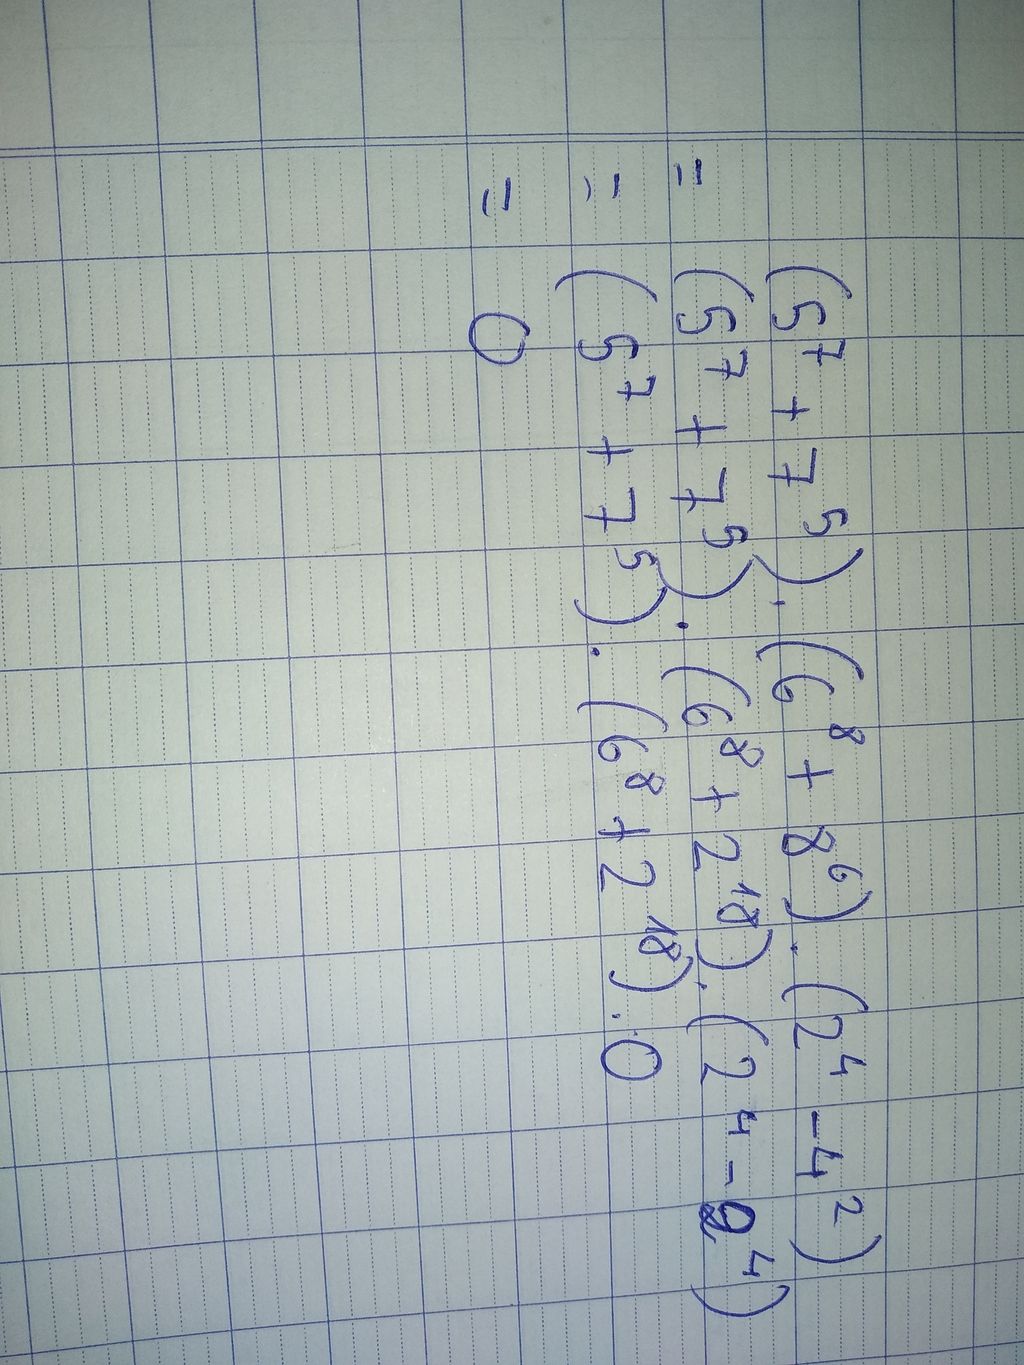 (5⁷ + 7⁵) . (6⁸ + 8⁶) . (2⁴ - 4²)
= (5⁷ + 7⁵) . (6⁸ + 2¹⁸) . (2⁴ - 2⁴)
= (5⁷ + 7⁵) . (6⁸ + 2¹⁸) . 0
= 0